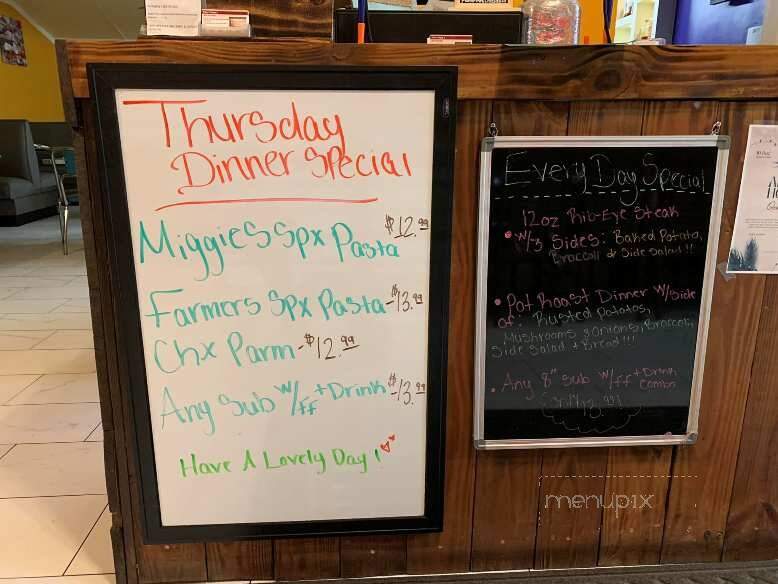 Thursday
Dinner Special
Miggies Spx Pasta $12.99
Farmers Spx Pasta-$13.99
Chx Parm-$12.99
Any Sub w/ff +Drink $13.99
Have A Lovely Day!
Every Day Special
12oz Rib-Eye Steak
• W/3 Sides: Baked Potato,
Broccoli & Side Salad!!
• Pot Roast Dinner W/Side
of: Roasted Potatos,
Mushrooms & Onions, Broccoli,
Side Salad + Bread!!!
• Any 8" Sub W/ff +Drink
Combo
13.99!
menupix